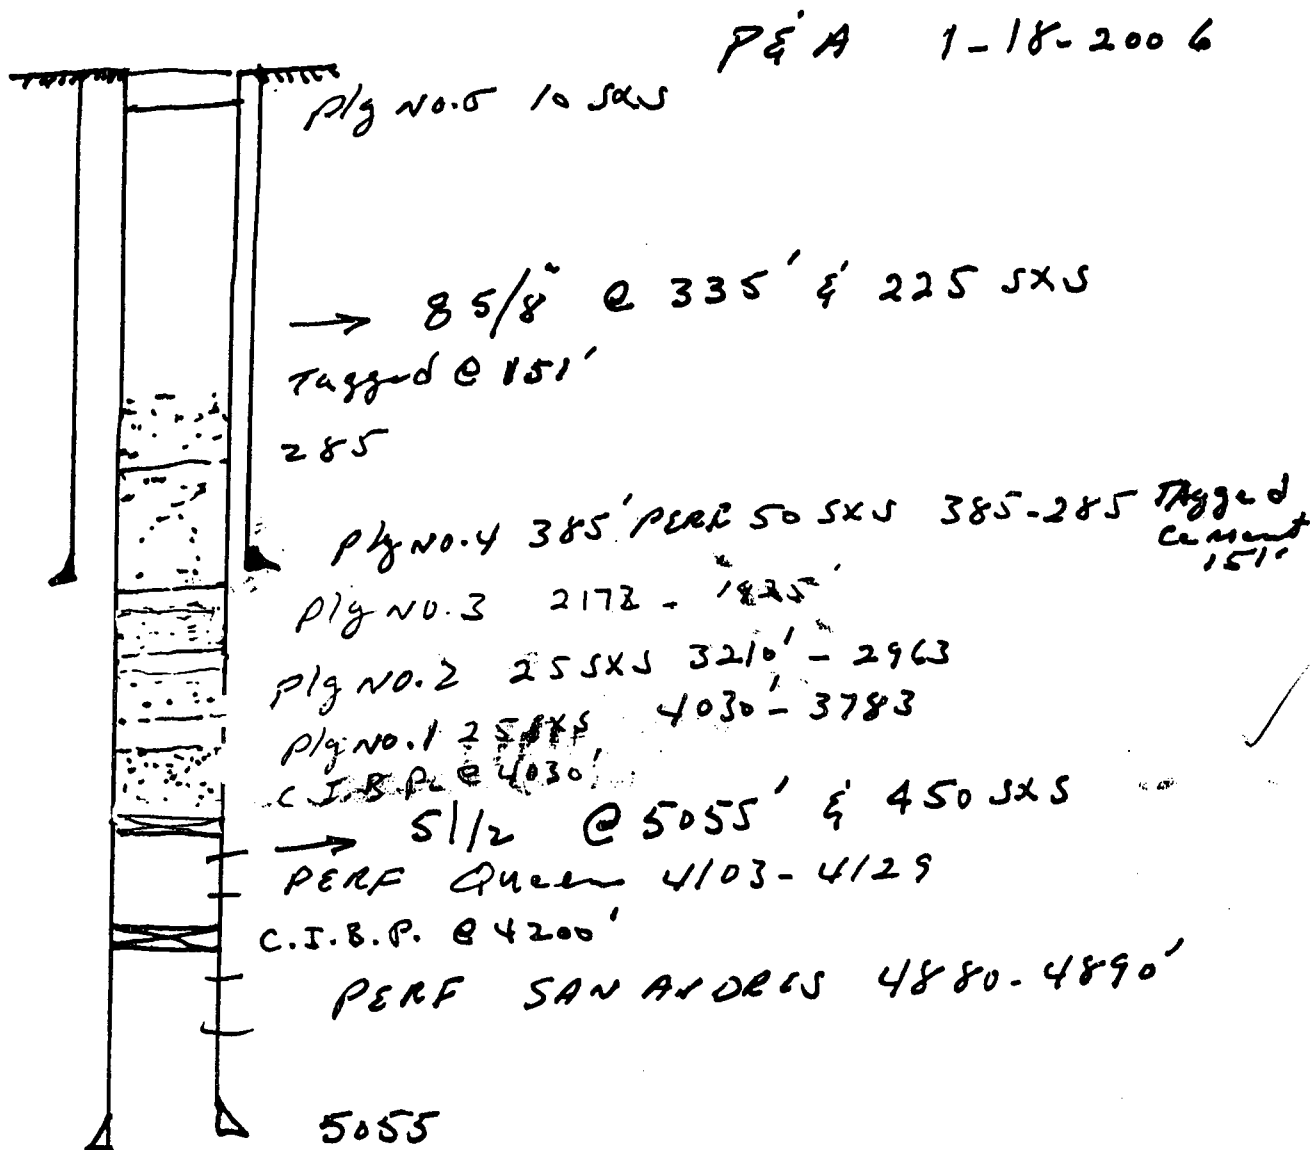 P & A 1-18-2006
Plg No.5 10 SXS
→ 8 5/8" @ 335' & 225 SXS
Tagged @ 151'
285
Plg No.4 385' PERF 50 SXS 385-285 TAgged Cement 151'
Plg No.3 2172 - 1825'
Plg No.2 25 SXS 3210' - 2963
Plg No.1 25 SXS 4030' - 3783
C.I.B.P. @ 4030'
→ 51/2 @ 5055' & 450 SXS
PERF Queen 4103-4129
C.I.B.P. @ 4200'
PERF SAN ANDRES 4880-4890'
5055